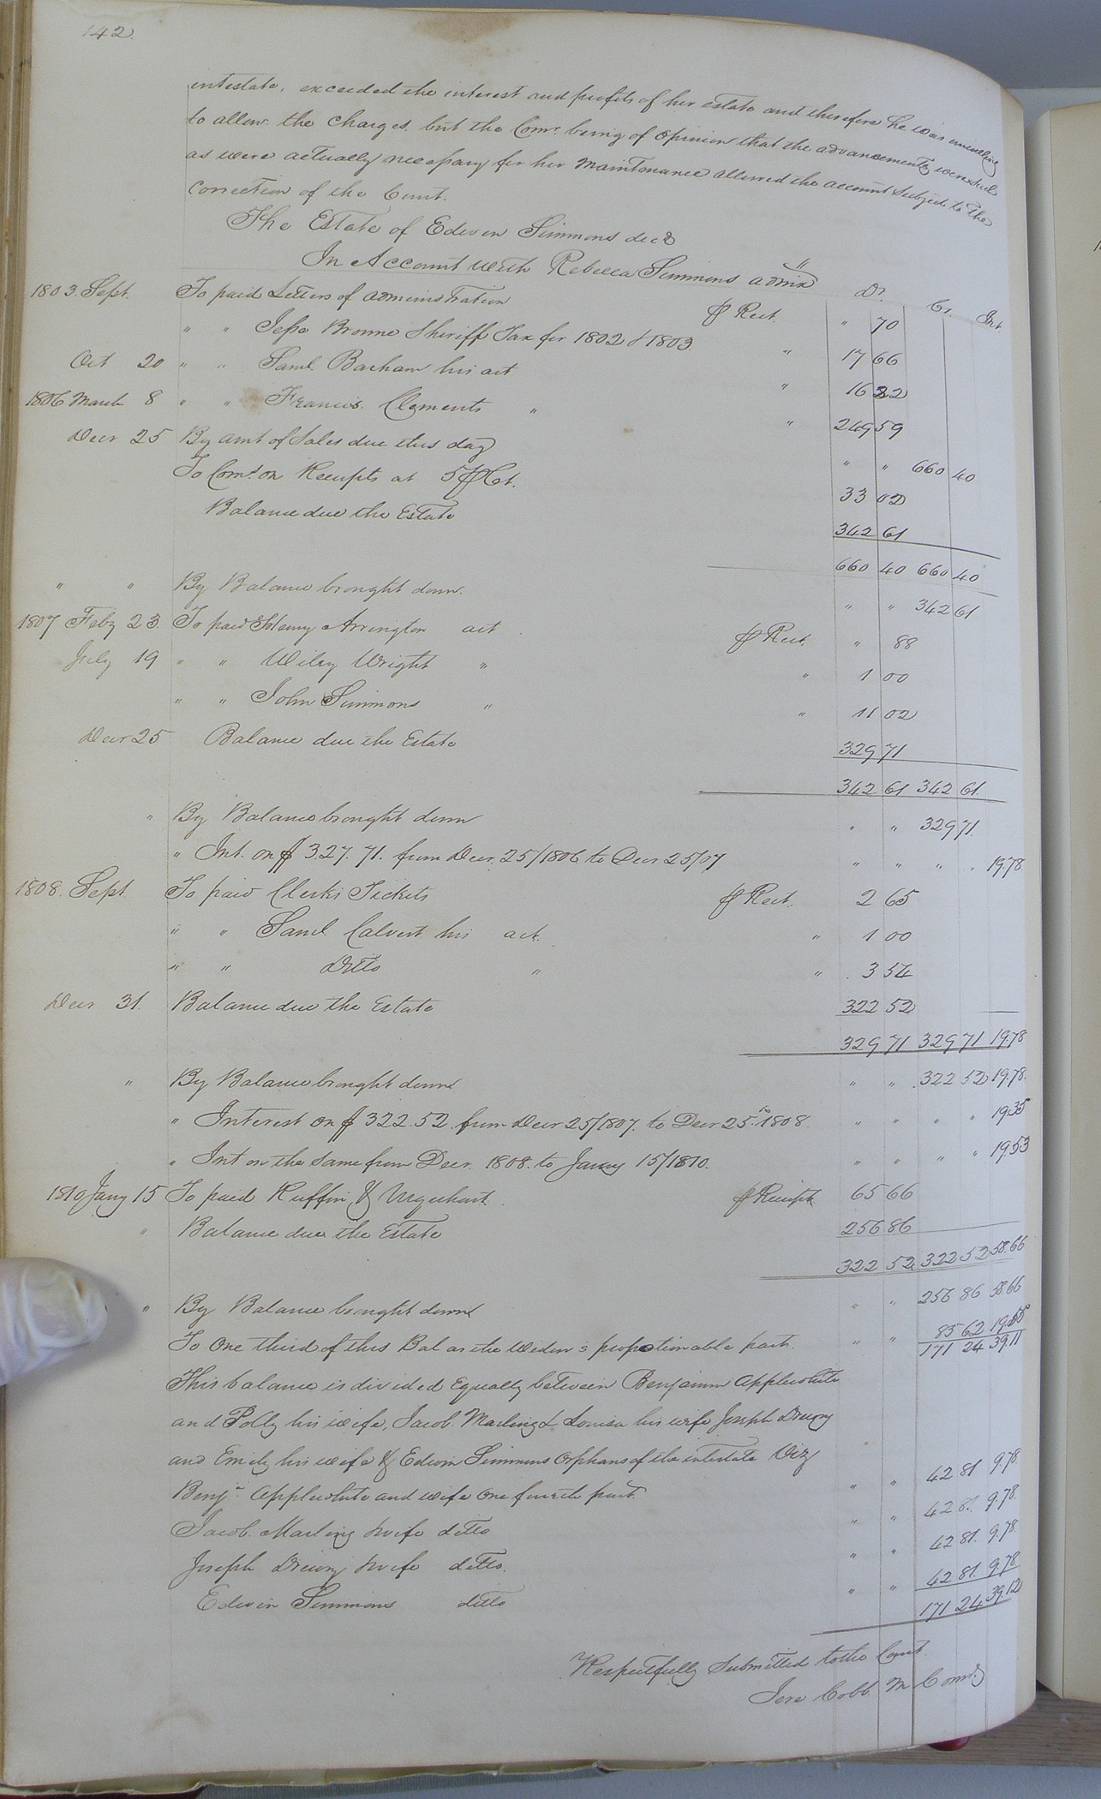 142.
intestate, exceeded the interest and profits of her estate and therefore he was unwilling
to allow the charges, but the Comr. being of opinion that the advancements were such
as were actually necessary for her Maintenance allowed the account Subject to the
Correction of the Court.
The Estate of Edwin Simmons decd
In Account with Rebecca Simmons admx
Dr. Cr. Int.
1803. Sept. To paid Letters of administration ⅌ Rect. " 70
" " Jesse Browne Sheriff Tax for 1802 & 1803 " 17 66
Oct 20 " " Saml Barham his act " 16 32
1806 March 8 " " Francis Clements " " 249 59
Decr 25 By amt of Sales due this day " " 660 40
To Coms. on Receipts at 5 ⅌ Ct. 33 02
Balance due the Estate 342 61
660 40 660 40
" " By Balance brought down. " " 342 61
1807 Feby 23 To paid Henry Arrington act ⅌ Rect. " 88
July 19 " " Wiley Wright " " 1 00
" " John Simmons " " 11 02
Decr 25 Balance due the Estate 329 71
342 61 342 61
" By Balance brought down " " 329 71
" Int. on $ 327. 71. from Decr. 25/1806 to Decr 25/07 " " " " 19.78
1808. Sept. To paid Clerks Tickets ⅌ Rect. 2 65
" " Saml Calvert his act. " 1 00
" " Ditto " " 3 54
Decr 31. Balance due the Estate 322 52
329 71 329 71 19.78
" By Balance brought down " " 322 52 19.78.
" Interest on $ 322.52. from Decr 25/1807. to Decr 25th 1808. " " " " 19.35
" Int on the same from Decr. 1808. to Jany 15/1810. " " " " 19.53
1810 Jany 15 To paid Ruffin & Urquhart. ⅌ Receipt 65 66
" Balance due the Estate 256 86
322 52 322 52 58.66
" By Balance brought down " " 256 86 58.66
To One third of this Bal as the Widow's propotionable part. " " 85 62 19.55
171 24 39.11
This balance is divided Equally between Benjamin Applewhite
and Polly his wife, Jacob Marling & Louisa his wife Joseph Drury
and Emily his wife & Edwin Simmons Orphans of the intestate Viz
Benjn. Applewhite and wife one fourth part " " 42 81 9.78
Jacob Marling & wife ditto " " 42 81 9.78.
Joseph Drury & wife ditto. " " 42 81. 9.78.
Edwin Simmons ditto " " 42 81. 9.78
171 24 39.12
Respectfully Submitted to the Court.
Jere Cobb M Comr.